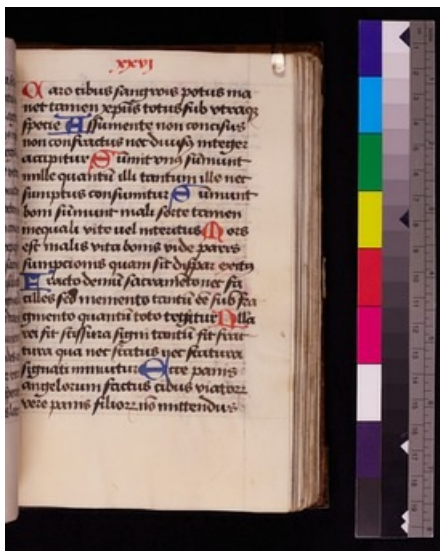 xxvi
Caro cibus sanguis potus ma
net tamen xpūs totus sub vtraqꝫ
specie Assumente non concisus
non confractus nec diuisꝰ integer
accipitur Sumit vnꝰ sumunt
mille quantū isti tantum ille nec
sumptus consumitur Sumunt
boni sumunt mali sorte tamen
inequali vite uel interitus Mors
est malis vita bonis vide paris
sumpcionis quam sit dispar exitꝰ
Fracto demū sacrameto nec va
cilles sed memento tantū ee sub fra
gmento quantū toto tegitur Nulla
rei fit scissura signi tantū fit frac
tura qua nec status nec statura
signati minuitur Ecce panis
angelorum factus cibus viatoꝝ
vere panis filioꝝ nō mittendus